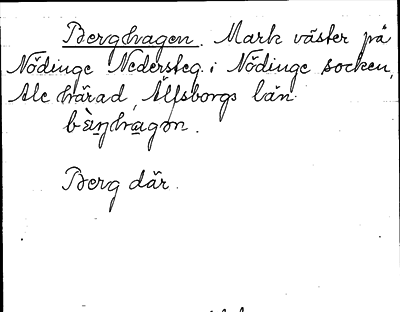 Berghagen. Mark väster på
Nödinge Nedersteg. i Nödinge socken,
Ale härad, Älfsborgs län.
Berg där.